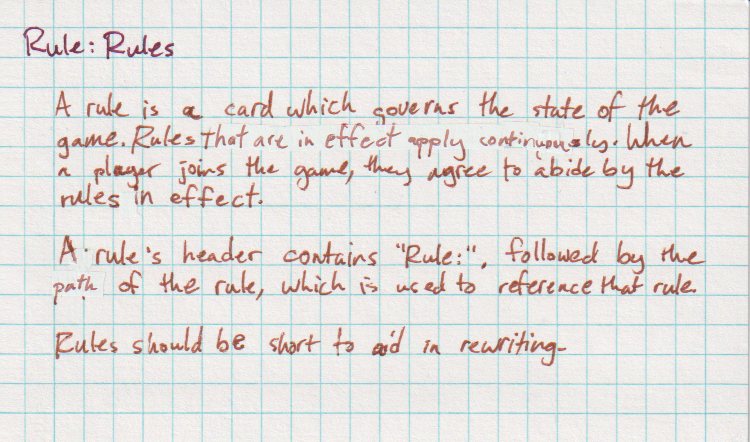 Rule: Rules
A rule is a card which governs the state of the
game. Rules that are in effect apply continuously. When
a player joins the game, they agree to abide by the
rules in effect.
A rule's header contains "Rule:", followed by the
path of the rule, which is used to reference that rule.
Rules should be short to aid in rewriting.